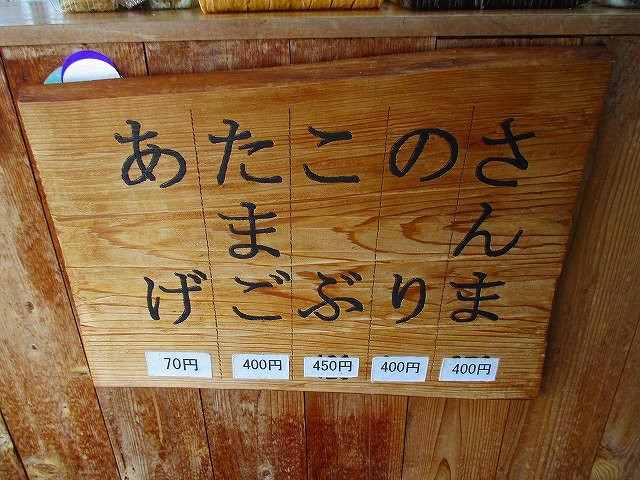 さんま
400円
のり
400円
こぶ
450円
たまご
400円
あげ
70円